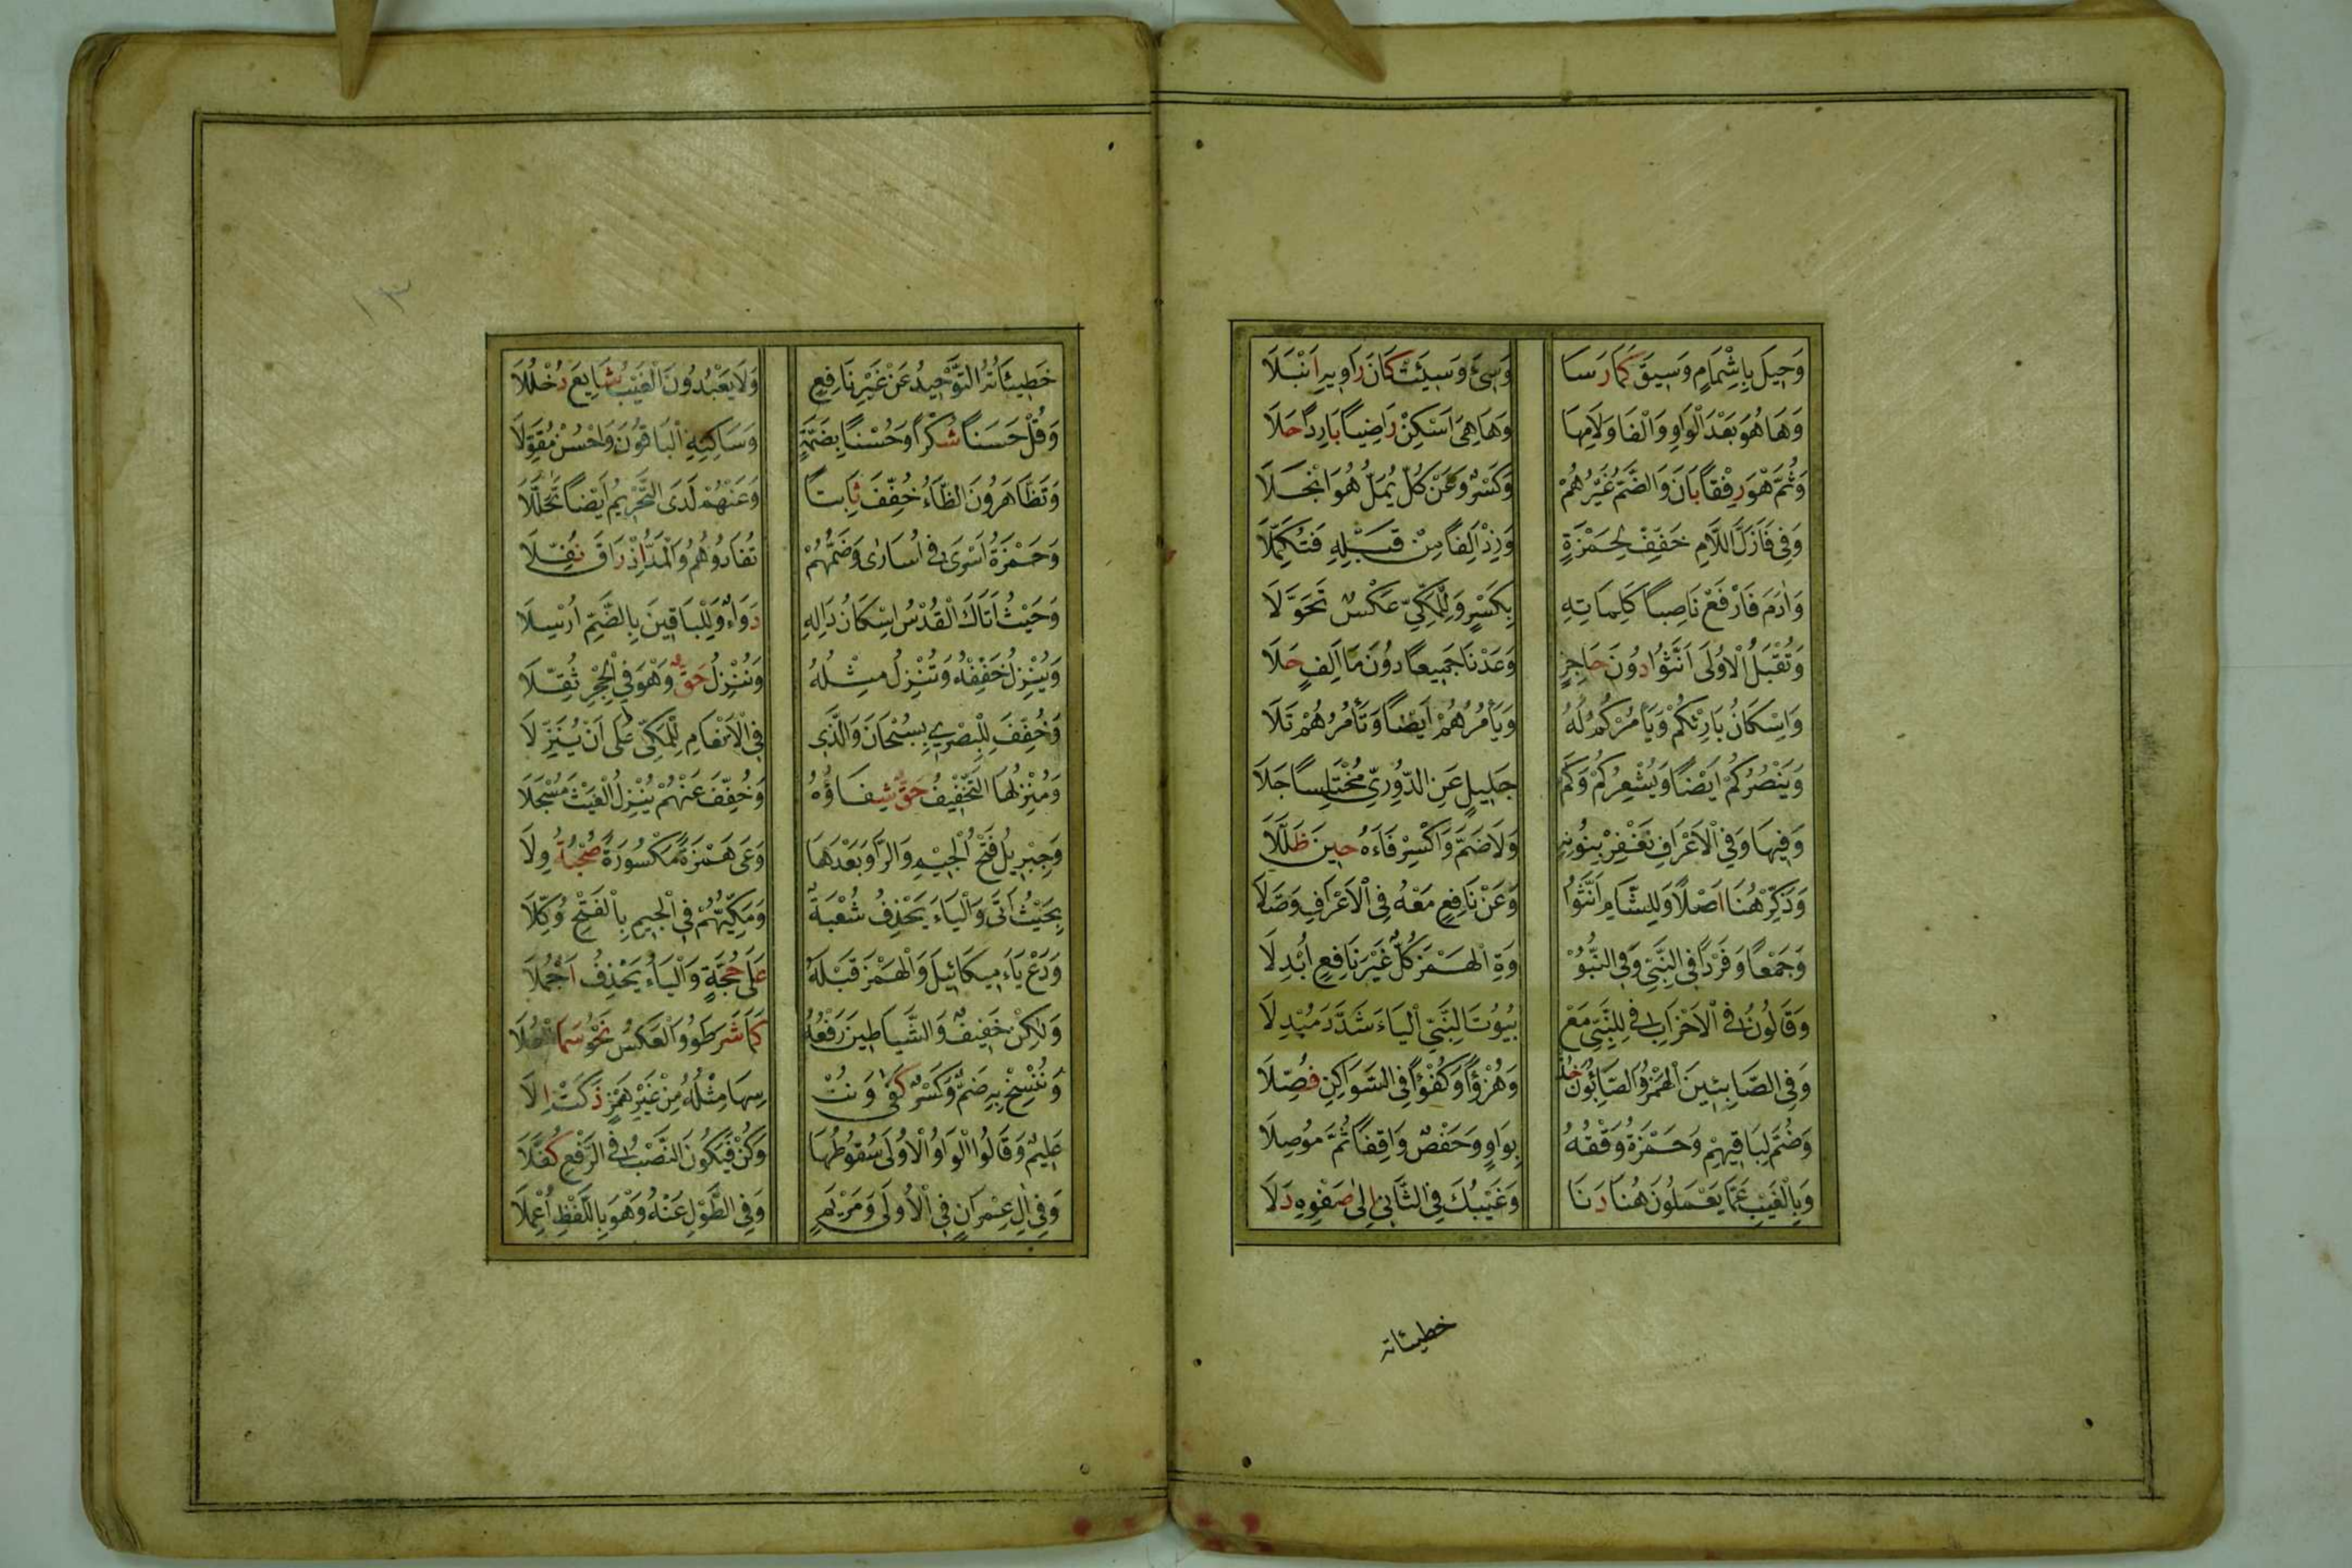 وَحِيلَ بِاِشْمَامٍ وَسِيقَ كَمَا رَسَا وَسِىءَ وَسِيئَتْ كَانَ رَاوِيهِ اَنْبَلَا
وَهَا هُوَ بَعْدَ الْوَاوِ وَالْفَا وَلَامِهَا وَهَا هِىَ اَسْكِنْ رَاضِيًا بَارِدًا حَلَا
وَثُمَّ هْوَ رِفْقًا بَانَ وَالضَّمُّ غَيْرُهُمْ وَكَسْرٌ وَعَنْ كُلٍّ يُمِلَّ هُوَ انْجَلَا
وَفِى فَازَلَ اللَّامَ خَفِّفْ لِحَمْزَةٍ وَزِدْ اَلِفًا مِنْ قَبْلِهِ فَتُكَمِّلَا
وَاٰدَمَ فَارْفَعْ نَاصِبًا كَلِمَاتِهِ بِكَسْرٍ وَلِلْمَكِّىِّ عَكْسٌ تَحَوَّلَا
وَتُقْبَلُ الْاُولَى اَنَّثُوا دُونَ حَاجِزٍ وَعَدْنَا جَمِيعًا دُونَ مَا اَلِفٍ حَلَا
وَاِسْكَانُ بَارِئْكُمْ وَيَأْمُرْكُمُ لَهُ وَيَأْمُرُهُمْ اَيْضًا وَتَأْمُرُهُمْ تَلَا
وَيَنْصُرُكُمْ اَيْضًا وَيُشْعِرُكُمْ وَكَمْ جَلِيلٍ عَنِ الدُّورِىِّ مُخْتَلِسًا جَلَا
وَفِيهَا وَفِي الْاَعْرَافِ نَغْفِرْ بِنُونِهِ وَلَا ضَمَّ وَاكْسِرْ فَاءَهُ حِينَ ظَلَّلَا
وَذَكِّرْ هُنَا اَصْلًا وَلِلشَّامِ اَنَّثُوا وَعَنْ نَافِعٍ مَعْهُ فِى الْاَعْرَافِ وَصَّلَا
وَجَمْعًا وَفَرْدًا فِى النَّبِىِّ وَفِى النُّبُوْ وَةِ الْهَمْزَ كُلٌّ غَيْرَ نَافِعٍ اُبْدِلَا
وَقَالُونُ فِى الْاَحْزَابِ فِى لِلنَّبِىِّ مَعْ بُيُوتَ النَّبِىِّ الْيَاءَ شَدَّدَ مُبْدِلَا
وَفِى الصَّابِئِينَ الْهَمْزُ وَالصَّابِئُونَ خُذْ وَهُزْؤًا وَكُفْؤًا فِى السَّوَاكِنِ فُصِّلَا
وَضُمَّ لِبَاقِيهِمْ وَحَمْزَةُ وَقْفُهُ بِوَاوٍ وَحَفْصٌ وَاقِفًا ثُمَّ مُوصِلَا
وَبِالْغَيْبِ عَمَّا يَعْمَلُونَ هُنَا دَنَا وَغَيْبُكَ فِى الثَّانِى اِلٰى صَفْوِهِ دَلَا
خطيئاته
١٣
خَطِيئَاتُهُ التَّوْحِيدُ عَنْ غَيْرِ نَافِعٍ وَلَا يَعْبُدُونَ الْغَيْبُ شَايَعَ دُخْلُلَا
وَقُلْ حَسَنًا شُكْرًا وَحُسْنًا بِضَمَّةٍ وَسَاكِنِهِ الْبَاقُونَ وَاحْسُنْ مُقَوِّلَا
وَتَظَّاهَرُونَ الظَّاءُ خُفِّفَ ثَابِتًا وَعَنْهُمْ لَدَى التَّحْرِيمِ اَيْضًا تَحَلَّلَا
وَحَمْزَةُ اَسْرَى فِى اُسَارٰى وَضَمُّهُمْ تُفَادُوهُمُ وَالْمَدُّ اِذْ رَاقَ نُفِّلَا
وَحَيْثُ اَتَاكَ الْقُدْسُ اِسْكَانُ دَالِهِ دَوَاءٌ وَلِلْبَاقِينَ بِالضَّمِّ اُرْسِلَا
وَيُنْزِلُ خَفِّفْهُ وَتُنْزِلُ مِثْلُهُ وَنُنْزِلُ حَقٌّ وَهْوَ فِي الْحِجْرِ ثُقِّلَا
وَخُفِّفَ لِلْبَصْرِى بِسُبْحَانَ وَالَّذِى فِى الْاَنْعَامِ لِلْمَكِّى عَلٰى اَنْ يُنَزِّلَا
وَمُنْزِلُهَا التَّخْفِيفُ حَقٌّ شِفَاؤُهُ وَخُفِّفَ عَنْهُمْ يُنْزِلُ الْغَيْثَ مُسْجَلَا
وَجِبْرِيلُ فَتْحُ الْجِيمِ وَالرَّا وَبَعْدَهَا وَعَى هَمْزَةً مَكْسُورَةً صُحْبَةٌ وِلَا
بِحَيْثُ اَتَى وَالْيَاءَ يَحْذِفُ شُعْبَةٌ وَمَكِّيُّهُمْ فِى الْجِيمِ بِالْفَتْحِ وُكِّلَا
وَدَعْ يَاءَ مِيكَائِيلَ وَالْهَمْزَ قَبْلَهُ عَلَى حُجَّةٍ وَالْيَاءُ يُحْذَفُ اَجْمَلَا
وَلٰكِنْ خَفِيفٌ وَالشَّيَاطِينَ رَفْعُهُ كَمَا شَرَطُوا وَالْعَكْسُ نَحْوٌ سَمَا الْعُلَا
وَنُنْسِخْ بِهِ ضَمٌّ وَكَسْرٌ كَفٰى وَنُنْـ ـسِهَا مِثْلُهُ مِنْ غَيْرِ هَمْزٍ ذَكَتْ اِلَا
عَلِيمٌ وَقَالُوا الْوَاوُ الْاُولَى سُقُوطُهَا وَكُنْ فَيَكُونُ النَّصْبُ فِى الرَّفْعِ كُفِّلَا
وَفِى اٰلِ عِمْرَانٍ فِى الْاُولَى وَمَرْيَمٍ وَفِى الطَّوْلِ عَنْهُ وَهْوَ بِاللَّفْظِ اُعْمِلَا